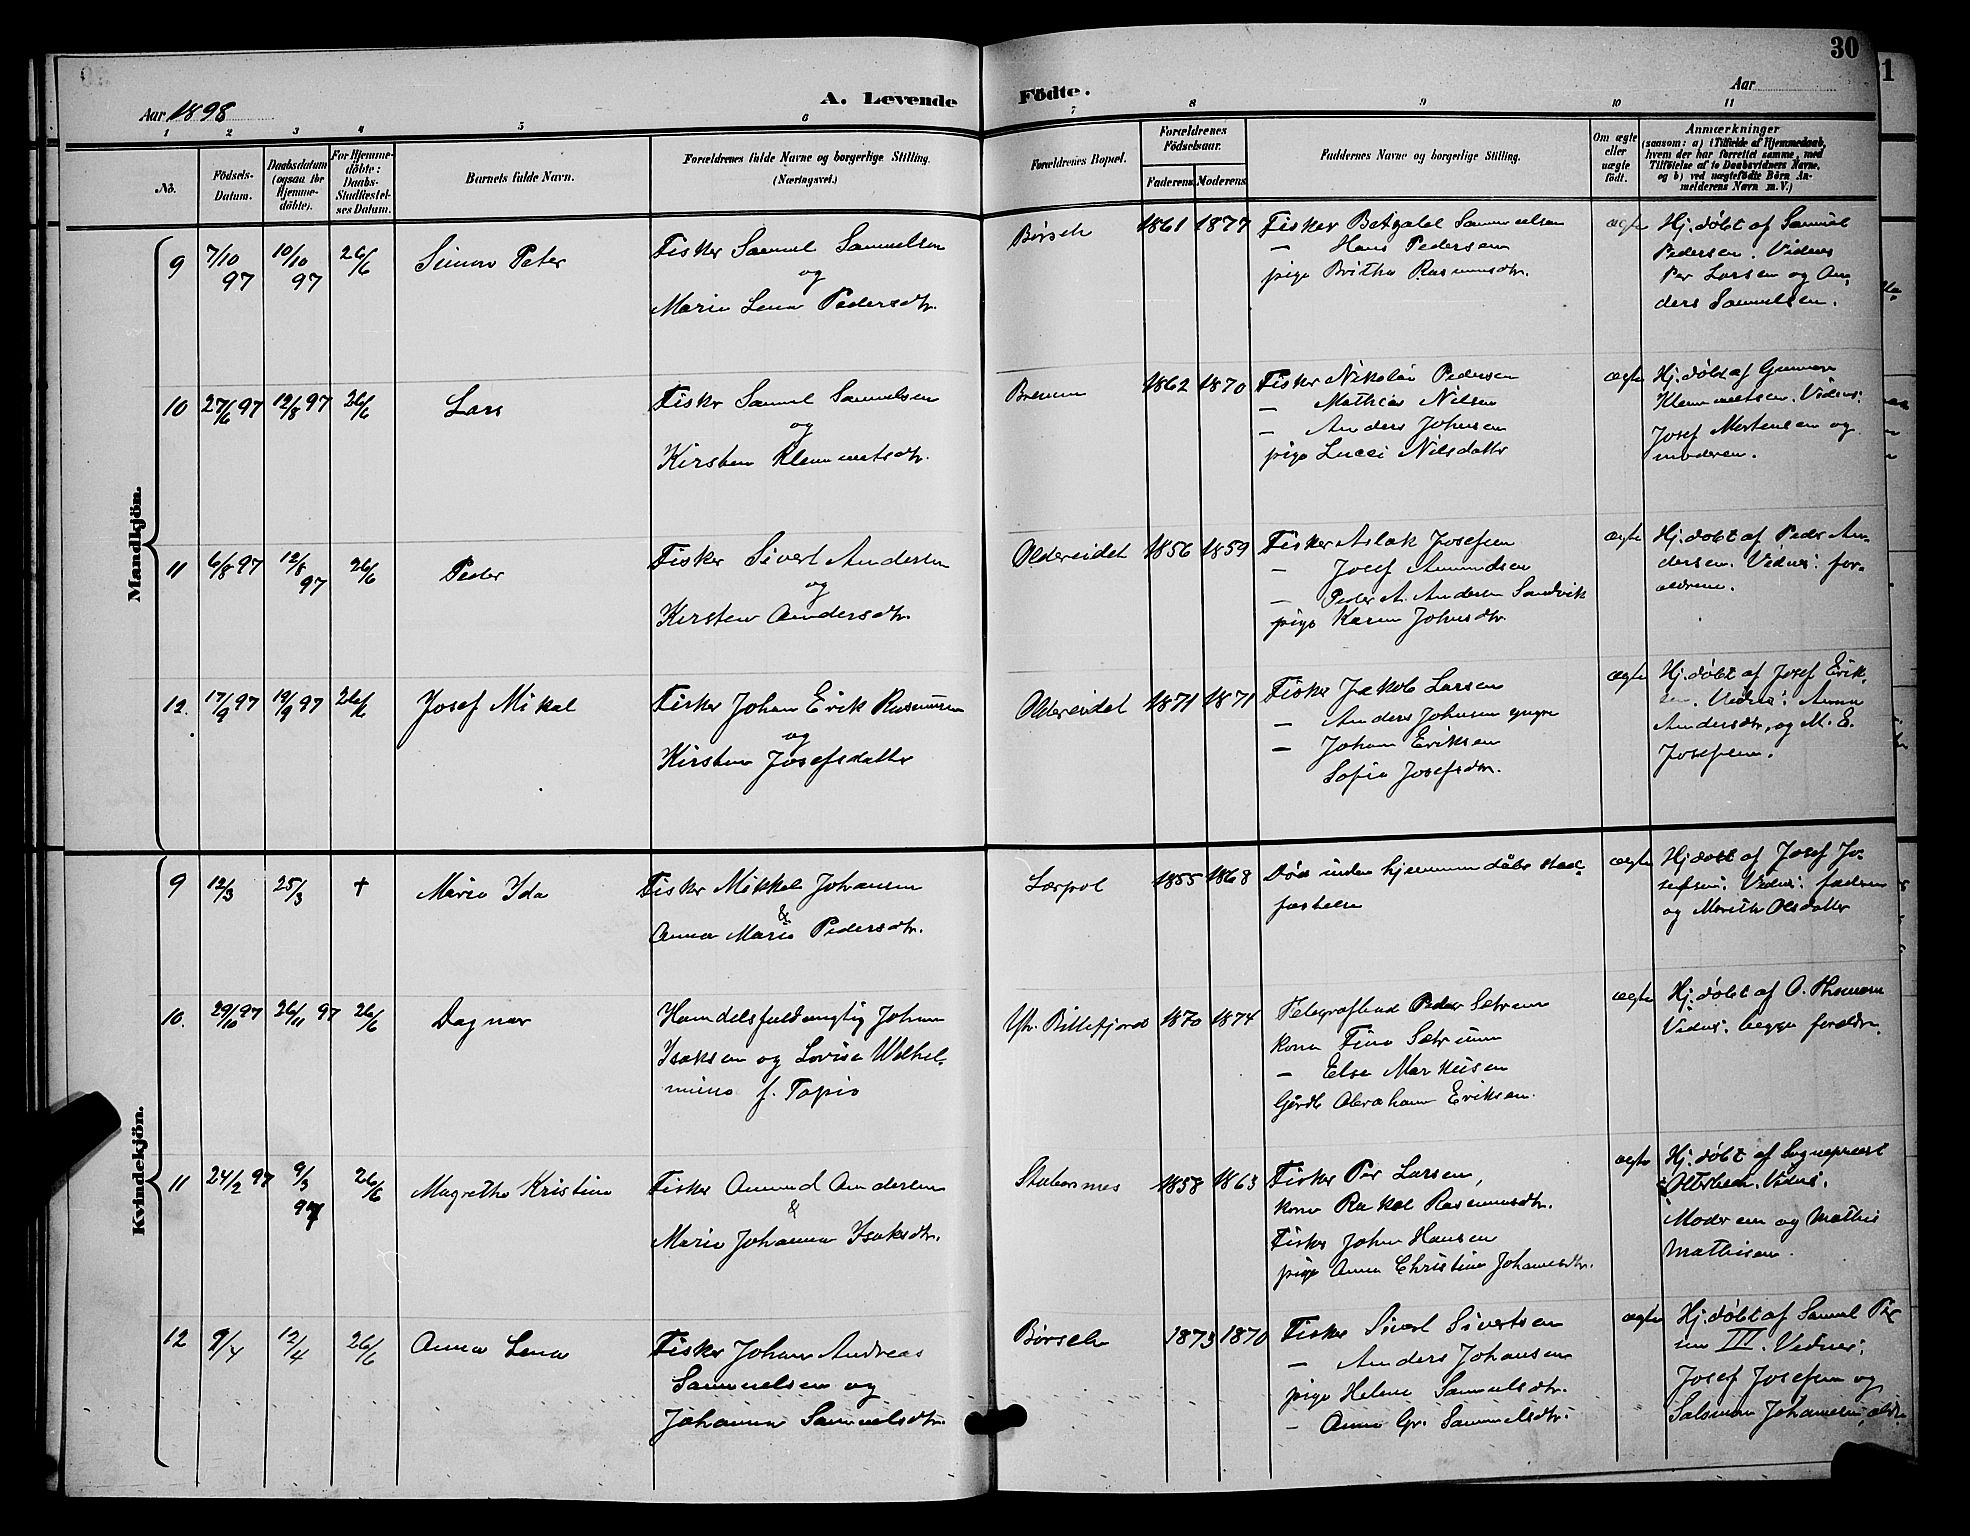 30
Aar 1898
A. Levende Födte.
Aar
1 2 3 4 5 6 7 8 9 10 11
No.
Födsels-Datum.
Daabsdatum (ogsaa for Hjemme-döbte).
For Hjemme-döbte: Daabs-Stadfæstelses Datum.
Barnets fulde Navn.
Forældrenes fulde Navne og borgerlige Stilling. (Næringsvei.)
Forældrenes Bopæl.
Forældrenes Födselsaar.
Faderens Moderens
Faddernes Navne og borgerlige Stilling.
Om ægte eller uægte födt.
Anmærkninger
(saasom: a) i Tilfælde af Hjemmedaab, hvem der har forrettet samme, med Tilföielse af to Daabsvidners Navne, og b) ved uægtefödte Börn Anmelderens Navn m. V.)
Mandkjön.
9 7/10 97 10/10 97 26/6 Simon Peter
Fisker Samuel Samuelsen
og
Marie Lena Pedersdtr.
Børselv 1861 1877
Fisker Samuelsen
— Hans Pedersen
pige Britha Rasmusdtr.
ægte
Hj. døbt af Samuel
Pedersen. Vidner
Per Larsen og An-
ders Samuelsen.
10 27/6 97 12/8 97 26/6 Lars
Fisker Samuel Samuelsen
og
Kirsten Klemmetsdtr.
Brenna 1862 1870
Fisker Nikolai Pedersen
— Mathias Nilsen
— Anders Johnsen
pige Lucci Nilsdatter
ægte
Hj. døbt af Gunnar
Klemmetsen. Vidner:
Josef Mortensen og
moderen.
11 6/8 97 12/8 97 26/6 Peder
Fisker Sivert Andersen
og
Kirsten Andersdtr.
Oldereidet 1856 1859
Fisker Aslak Josefsen
— Josef Amundsen
— Peder A. Andersen Sandvik
pige Karen Johnsdtr.
ægte
Hj. døbt af Peder An-
dersen. Vidner: for-
ældrene.
12. 17/9 97 19/9 97 26/6 Josef Mikal
Fisker Johan Erik Rasmussen
og
Kirsten Josefsdatter
Oldereidet 1871 1871
Fisker Jakob Larsen
— Anders Johnsen yngre
— Johan Eriksen
Sofie Josefsdtr.
ægte
Hj. døbt af Josef Erik-
sen. Vidner: Anna
Andersdtr., og M. E.
Josefsen.
Kvindekjön.
9 12/3 25/3 † Marie Ida
Fisker Mikkel Johansen
&
Anna Marie Pedersdtr.
Lerpol 1855 1868
Død uden hjemmedåbs stad-
fæstelse
ægte
Hj. døbt af Josef Jo-
sefsen. Vidner: faderen
og Marith Olsdatter
10. 29/10 97 26/11 97 26/6 Dagmar
Handelsfuldmægtig Johan
Isaksen og Lovise Wilhel-
mine f. Tapio
Ytr. Billefjord 1870 1874
Peder Sætrum
kone Fina Sætrum
— Else Markusen
Gårdb Abraham Eriksen.
ægte
Hj. døbt af O. Thomasen
Vidner: begge forældre
11 24/2 97 9/3 97 26/6 Magrethe Kristine
Fisker Amund Andersen
&
Marie Johanna Isaksdtr.
Stabbursnes 1858 1863
Fisker Per Larsen,
kone Rakel Rasmusdtr.
Fisker John Hansen
pige Anna Christine Johannesdtr.
ægte
Hj. døbt af Sognepræst
Vidner:
Moderen og Mathis
Mathisen.
12 9/4 12/4 26/6 Anna Lena
Fisker Johan Andreas
Samuelsen og
Johanna Samuelsdtr.
Børselv 1873 1870
Fisker Sivert Sivertsen
— Anders Johansen
pige Helene Samuelsdtr.
— Anna Gr. Samuelsdtr.
ægte
Hj. døbt af Samuel
III. Vidner:
Josef Josefsen og
Salomon Johannesen